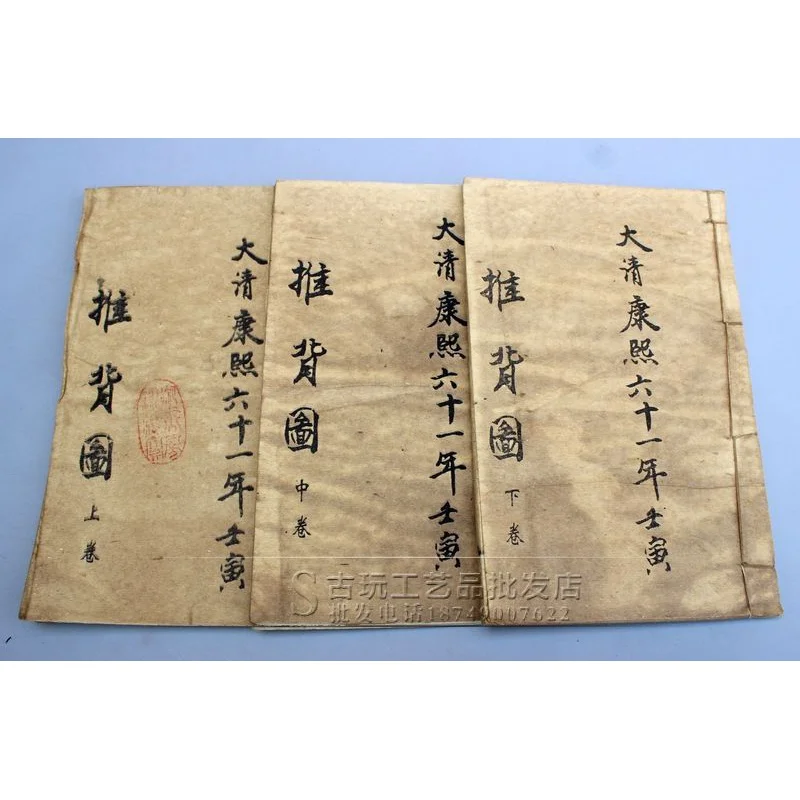 大清康熙六十一年壬寅
推背圖
上卷
大清康熙六十一年壬寅
推背圖
中卷
大清康熙六十一年壬寅
推背圖
下卷
S 古玩工艺品批发店
批发电话18749007622